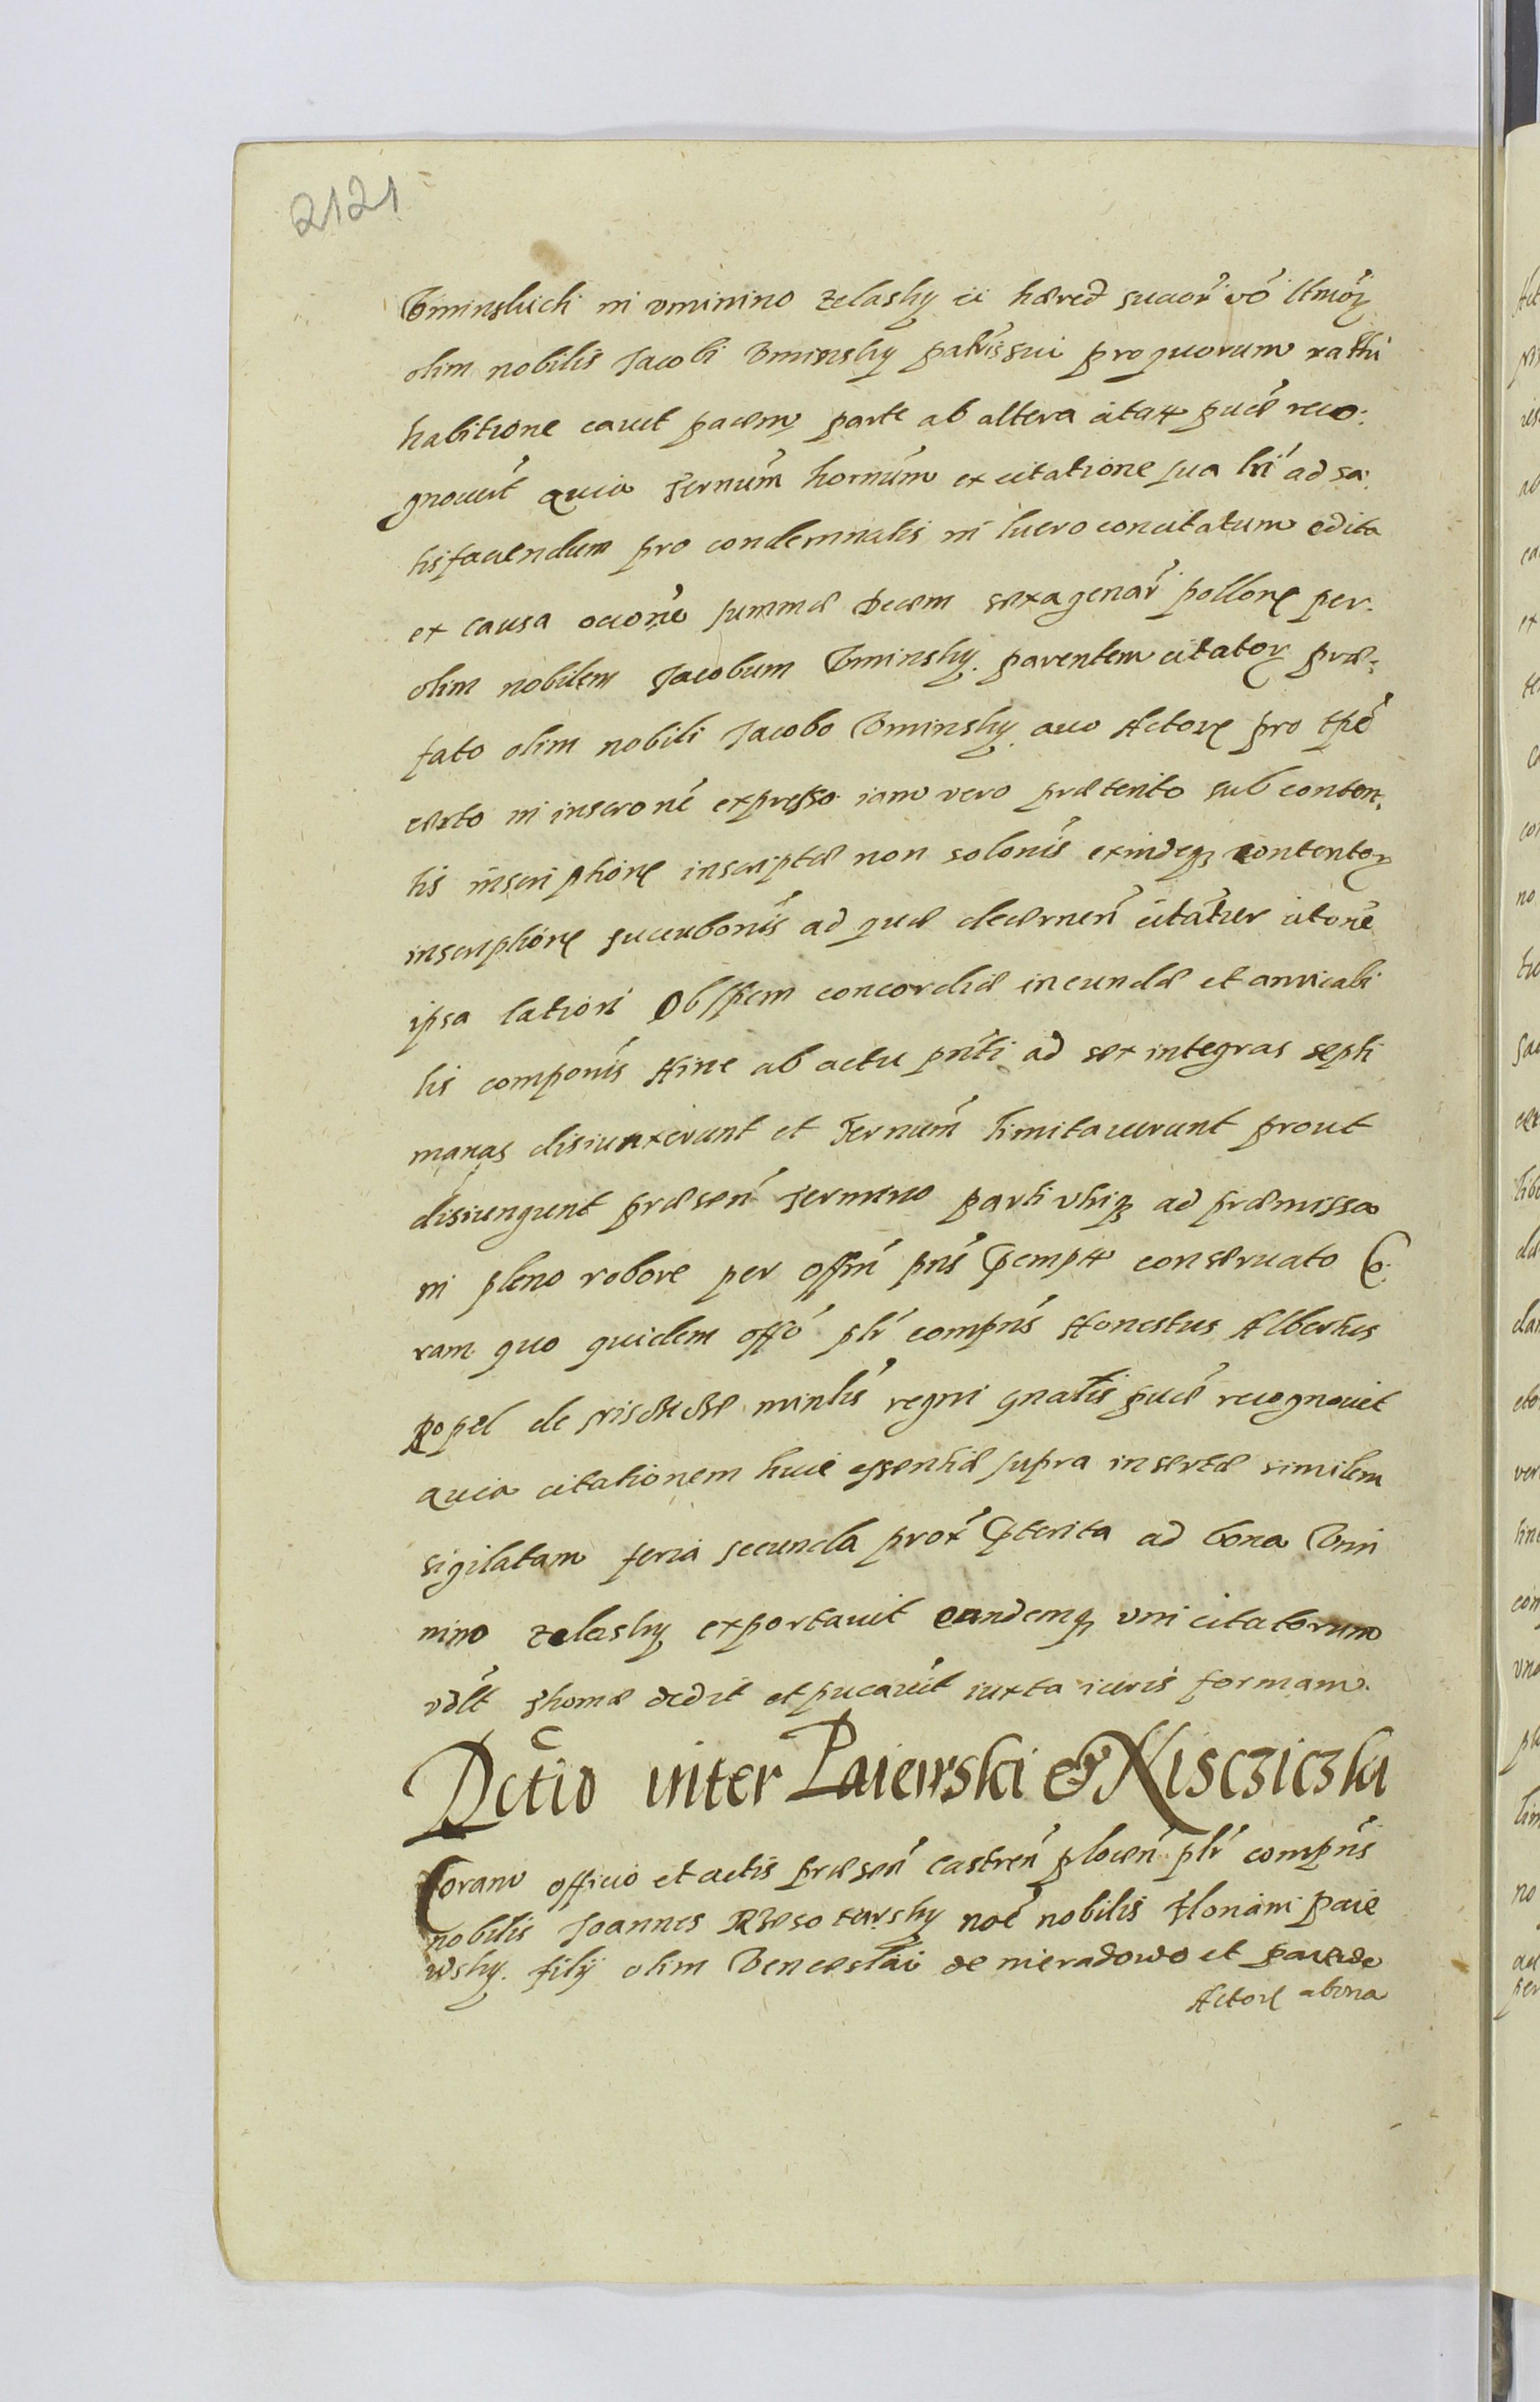 2121
Vminskich in Vminino zelasky ii hæred suuor vo
olim nobilis Jacobi Vminsky patris sui pro quorum rathi
habitione cavit pacem parte ab altera citat puce reco:
gnouert quia Ternum hornum ex citatione sua ad sa:
tisfaciendum pro condemnatis in lucro concitatum edita
ex causa summæ Decem sexagenar pollone per
olim nobilem Jacobum Vminsky parentem citator præ:
fato olim nobili Jacobo Vminsky auo Actore pro tpe
certo in inscrone expresso iam vero præterito sub conten,
tis inscriptione inscriptæ non solonis exindeq contentor
inscriptione succubonis ad quæ decernen citatur citone
ipsa latiori Ob spem concordiæ ineundæ et amicabi
lis componis Hinc ab actu pnti ad sex integras septi
manas disiunxerunt et Ternum limitauerunt prout
disiungunt præsen Termino parti vtriq ad præmissa
in pleno robore per offm pns semp conseruato Co:
ram quo quidem offo plr compns Honestus Albertus
Popel de minlis regni gnalis puce recognouit
quia citationem huic essentiæ supra insertæ similem
sigilatam feria secunda prox pterita ad bona Vmi
nino zelasky exportauit eandemq vni citatorum
vdlt Thomæ dedit et pucauit iuxta iuris formam.
Dctio inter Paiewski & Niscziczki
Coram officio et actis præsen castren plocen plr compns
nobilis Joannes noe nobilis Floriani paie
wsky. filij olim Venceslai de nieradowo et
Actore abona